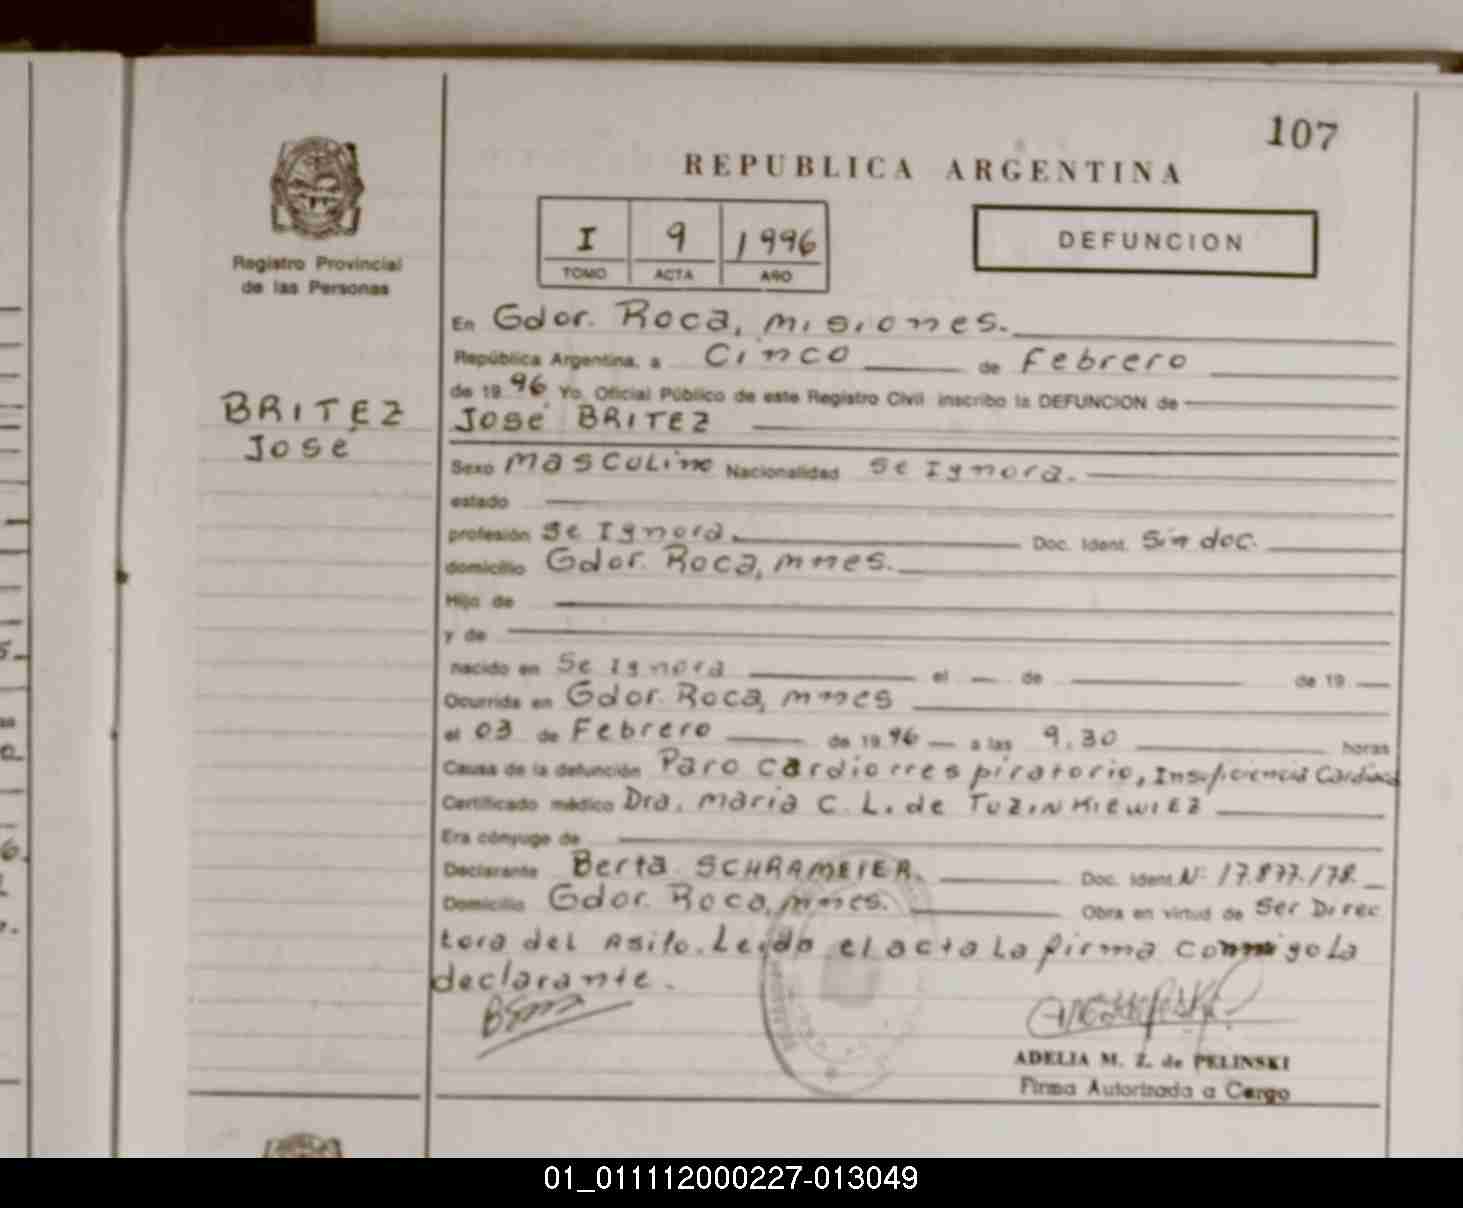 107
REPUBLICA ARGENTINA
I 9 1996
TOMO ACTA AÑO
DEFUNCION
Registro Provincial
de las Personas
BRITEZ
José
En Gdor. Roca, misiones.
República Argentina, a Cinco de Febrero
de 19 96 Yo, Oficial Público de este Registro Civil inscribo la DEFUNCION de
José BRITEZ
Sexo Masculino Nacionalidad se Ignora.
estado
profesión Se Ignora. Doc. Ident. Sin doc.
domicilio Gdor. Roca, mnes.
Hijo de
y de
nacido en Se Ignora el de de 19
Ocurrida en Gdor. Roca, mnes
el 03 de Febrero de 19 96 a las 9.30 horas
Causa de la defunción Paro cardiorrespiratorio, Insuficiencia Cardiaca
Certificado médico Dra. Maria C. L. de TUZINKIEWIEZ
Era cónyuge de
Declarante Berta SCHRAMEIER. Doc. Ident. Nº 17.877.178
Domicilio Gdor. Roca, mnes. Obra en virtud de Ser Direc
tora del Asilo. Leida el acta La firma conmigo La
declarante.
ADELIA M. Z. de PELINSKI
Firma Autorizada a Cargo
01_011112000227-013049